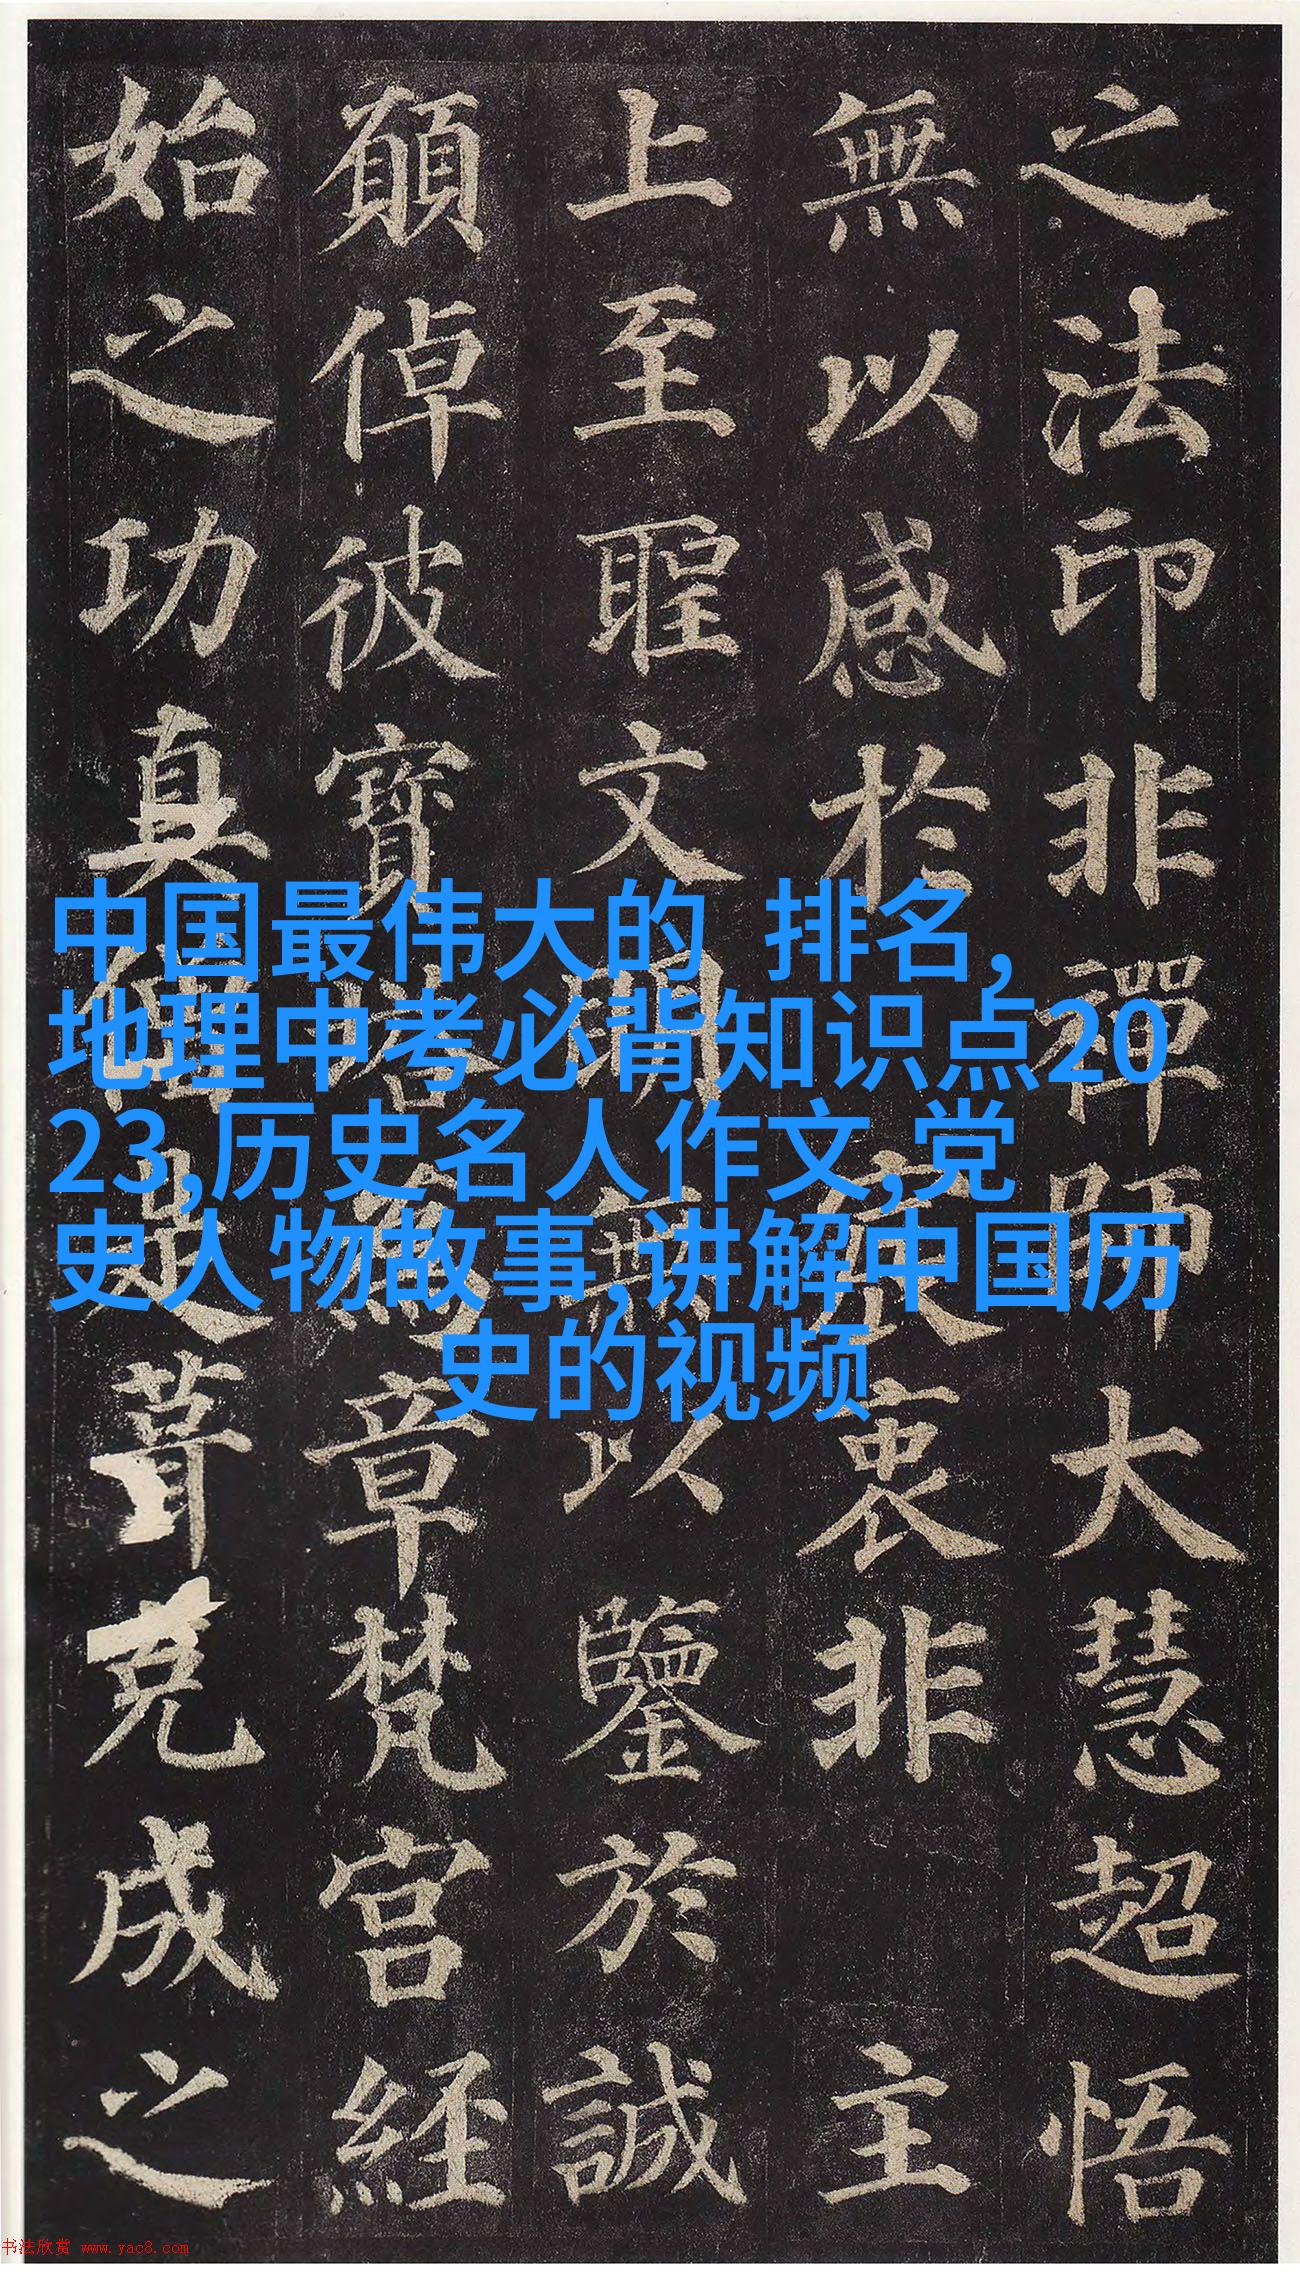 之法印非禪師大慧超悟
無以感於宸衷非主
上至聖文明無以鑒於誠
願倬彼寶塔為章梵宮經
始之功真僧是葺克成之
中国最伟大的 排名,
地理中考必背知识点20
23,历史名人作文,党
史人物故事,讲解中国历
史的视频
书法欣赏 www.yac8.com